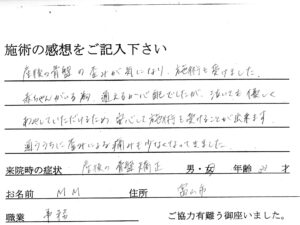 施術の感想をご記入下さい
産後の骨盤の歪みが気になり、施術を受けました。
赤ちゃんがいる為、通えるか心配でしたが、泣いても優しく
あやしていただけるため、安心して施術を受けることが出来ます。
通ううちに歪みによる痛みも少なくなってきました。
来院時の症状 産後の骨盤矯正 男・女 年齢 才
お名前 M M 住所 富山市
職業 事務 ご協力有難う御座いました。